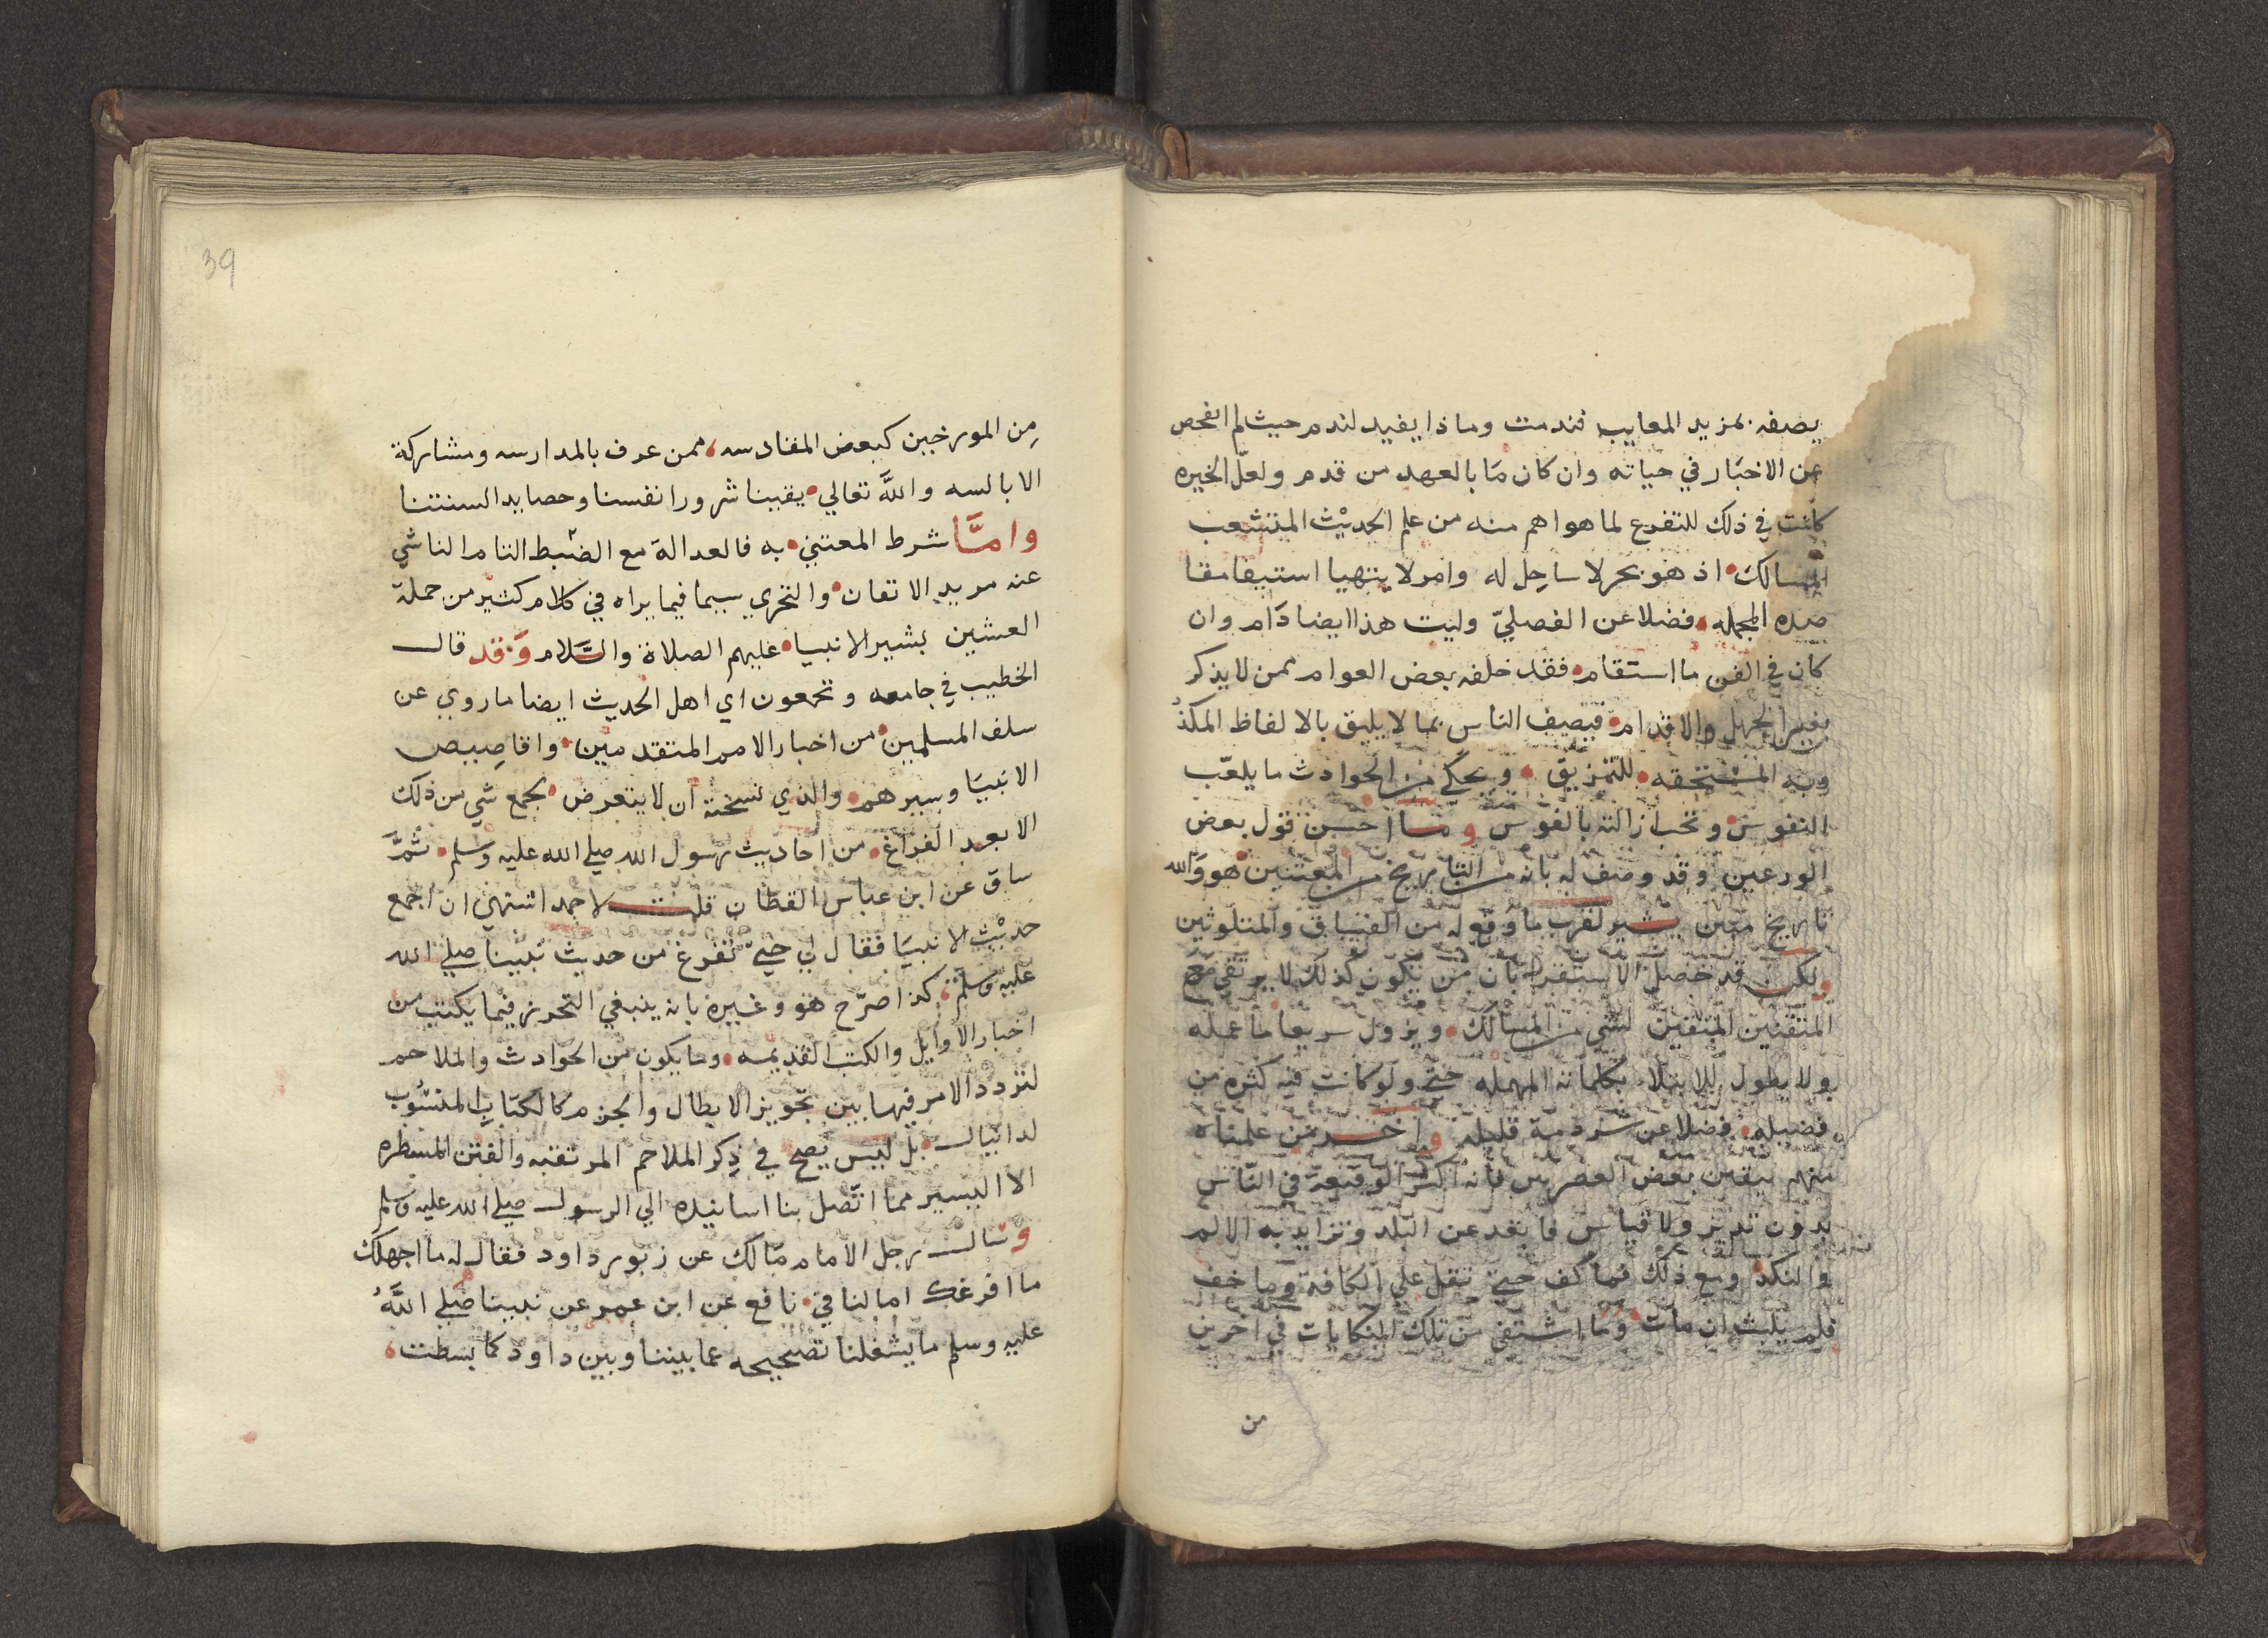 يصفه بمزيد المعايب فندمت وماذا يفيد لندم حيث لم الفحص
عن الاخبار في حياته وان كان ما بالعهد من قدم ولعل الخيره
كانت في ذلك للتفرغ لما هو اهم منه من علم الحديث المتشعب
المسالك اذ هو بحر لا ساحل له وامر لا ينتهيا استيفا مقا
صده المجمله فضلا عن الفصلي وليت هذا ايضا دام وان
كان في الفن ما استقام فقد خلفه بعض العوام ممن لا يذكر
بغير الجهل والاقدام فيصيف الناس بما لا يليق بالالفاظ المكذ
وبه المستحقه للتمزيق ويحكي من الحوادث ما يلعب
النفوس وتحب ازالته بالفوس وما احسن قول بعض
الورعين وقد وصف له بانه من التاريخ من المعتنين هو والله
تاريخ مبين يشير لقرب ما وقع له من الفساق والمتلوثين
ولكن قد حصل الاستقرا بان من يكون كذلك لا يرتقي من
المتقنين المتقين لشي من المسالك ويزول سريعا ما عمله
ولا يطول للابتلا بكلماته المهمله حتى ولو كانت فيه كثره من
فضيله فضلا عن شرذمة قليله واخر من علمناه
منهم بيقين بعض العصريين فانه اكثر الوقيعة في الناس
بدون تدبر ولا قياس فابعد عن البلد وتزايد به الالم
والنكد ومع ذلك فما كف حتى ثقل علي الكافة وما خف
فلم يلبث ان مات وما اشتفى من تلك النكايات في اخرين
من
39
من المورخين كبعض المقادسه ممن عرف بالمدارسه ومشاركة
الابالسه والله تعالي يقينا شرور انفسنا وحصايد السنتنا
واما شرط المعتني به فالعدالة مع الضبط التام الناشي
عنه مريد الاتقان والتحري سيما فيما يراه في كلام كثير من جملة
العشين بشير الانبيا عليهم الصلاة والسلام وقد قال
الخطيب في جامعه وتجمعون اي اهل الحديث ايضا ما روي عن
سلف المسلمين من اخبار الامم المتقدمين واقاصيص
الانبيا وسيرهم والذي نسخته ان لا يتعرض بجمع شي من ذلك
الا بعد الفراغ من احاديث رسول الله صلي الله عليه وسلم ثم
ساق عن ابن عباس القطان قلت لاحمد اشتهي ان اجمع
حديث الانبيا فقال لي حتى تفرغ من حديث نبينا صلي الله
عليه وسلم كذا صرح هو وغيره بانه ينبغي التحرز فيما يكتب من
اخبار الاوايل والكتب القديمه وما يكون من الحوادث والملاحم
لتردد الامر فيها بين تجويز الابطال والجزم كالكتاب المنسوب
لدانيال بل ليس يصح في ذكر الملاحم المرتقبه والفتن المسطره
الا اليسير مما اتصل بنا اسانيده الي الرسول صلي الله عليه وسلم
وسال رجل الامام مالك عن زبور داود فقال له ما اجهلك
ما افرغك اما لنا في نافع عن ابن عمر عن نبينا صلي الله
عليه وسلم ما يشغلنا تصحيحه عما بيننا وبين داود كما بسطت